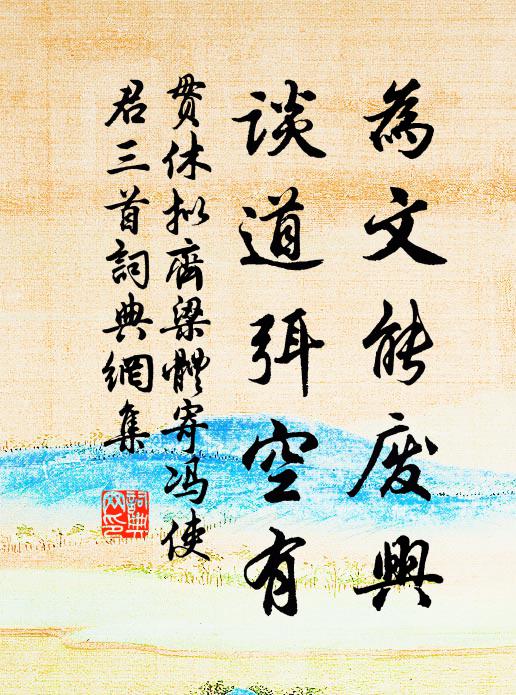 為文能废興
談道弭空有
贯休拟齊梁體寄冯使
君三首詞典網集
詞典
网印